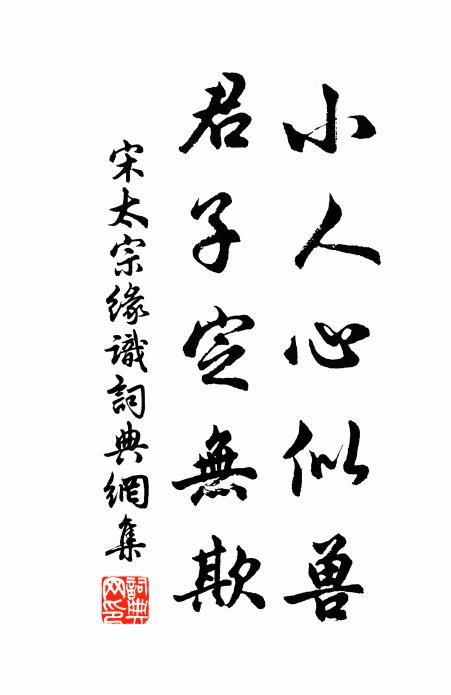 小人心似兽
君子定無欺
宋太宗緣識詞典網集
詞典網印